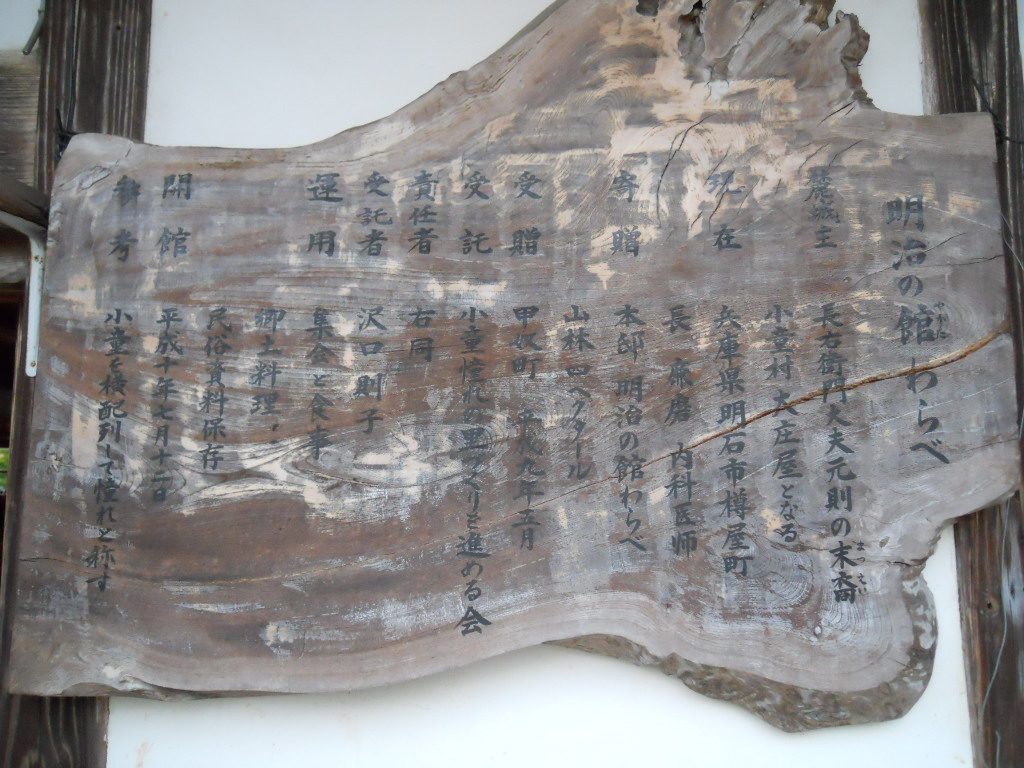 明治の館 わらべ
やかた
城主 長右衛門大夫元則の末裔
まつえい
小童村大庄屋となる
現在 兵庫県明石市樽屋町
長 康麿 内科医師
寄贈 本邸 明治の館わらべ
山林 四ヘクタール
受贈 甲奴町 平成九年五月
受託 小童憧れの里づくりを進める会
責任者 右同
受託者 沢口則子
運用 集会と食事
郷土料理
民俗資料保存
開館 平成十年七月十二日
参考 小童を横配列して憧れと称す